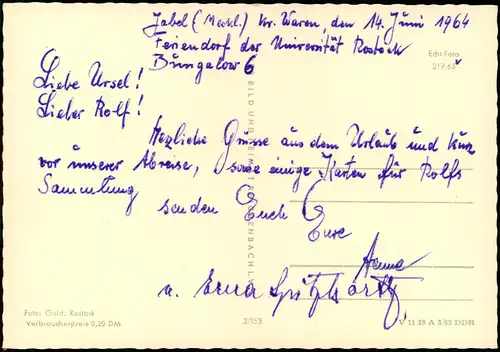 Jabel (Meckl.) Kr. Waren, den 14. Juni 1964
Feriendorf der Universität Rostock
Bungalow 6
Echt Foto
217/63
Liebe Ursel!
Lieber Rolf!
Herzliche Grüsse aus dem Urlaub und kurz
vor unserer Abreise, sowie einige Karten für Rolfs
Sammlung
senden Euch Eure
Anne
u. Erna
BILD UND HEIMAT REICHENBACH I. V.
Foto: Gold, Rostock
Verbraucherpreis 0,20 DM
3/953
V 11 28 A 3/63 DDR